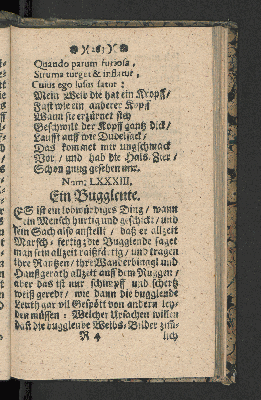 Quando parum furiosa,
Struma turget & inflatur,
Cuius ego lusus fatur:
Mein Weib die hat ein Kropff/
Fast wie ein anderer Kopff
Wann sie erzürnet sich
Geschwilt der Kopff gantz dick/
Laufft auff wie Dudelsack/
Das kommet mir ungschmack
Vor/ und hab die Hals-Zier/
Schon gnug gesehen
Num. LXXXIII.
Ein Bugglente.
ES ist ein lobwürdiges Ding/ wann
ein Mensch hurtig und geschickt/ und
sein Sach also anstellt/ daß er allzeit
Marsch-fertig: die Bugglende saget
man sein allzeit raißfärtig/ und tragen
ihre Rantzen/ ihre Wanderbinggl und
allzeit auf dem Ruggen/
aber das ist nur schimpff und schertz
weiß geredt/ wie dann die bugglende
Leuth gar vil Gespött von andern ley-
den müssen: Welcher Ursachen willen
daß die bugglende Weibs-Bilder
R 4 lich